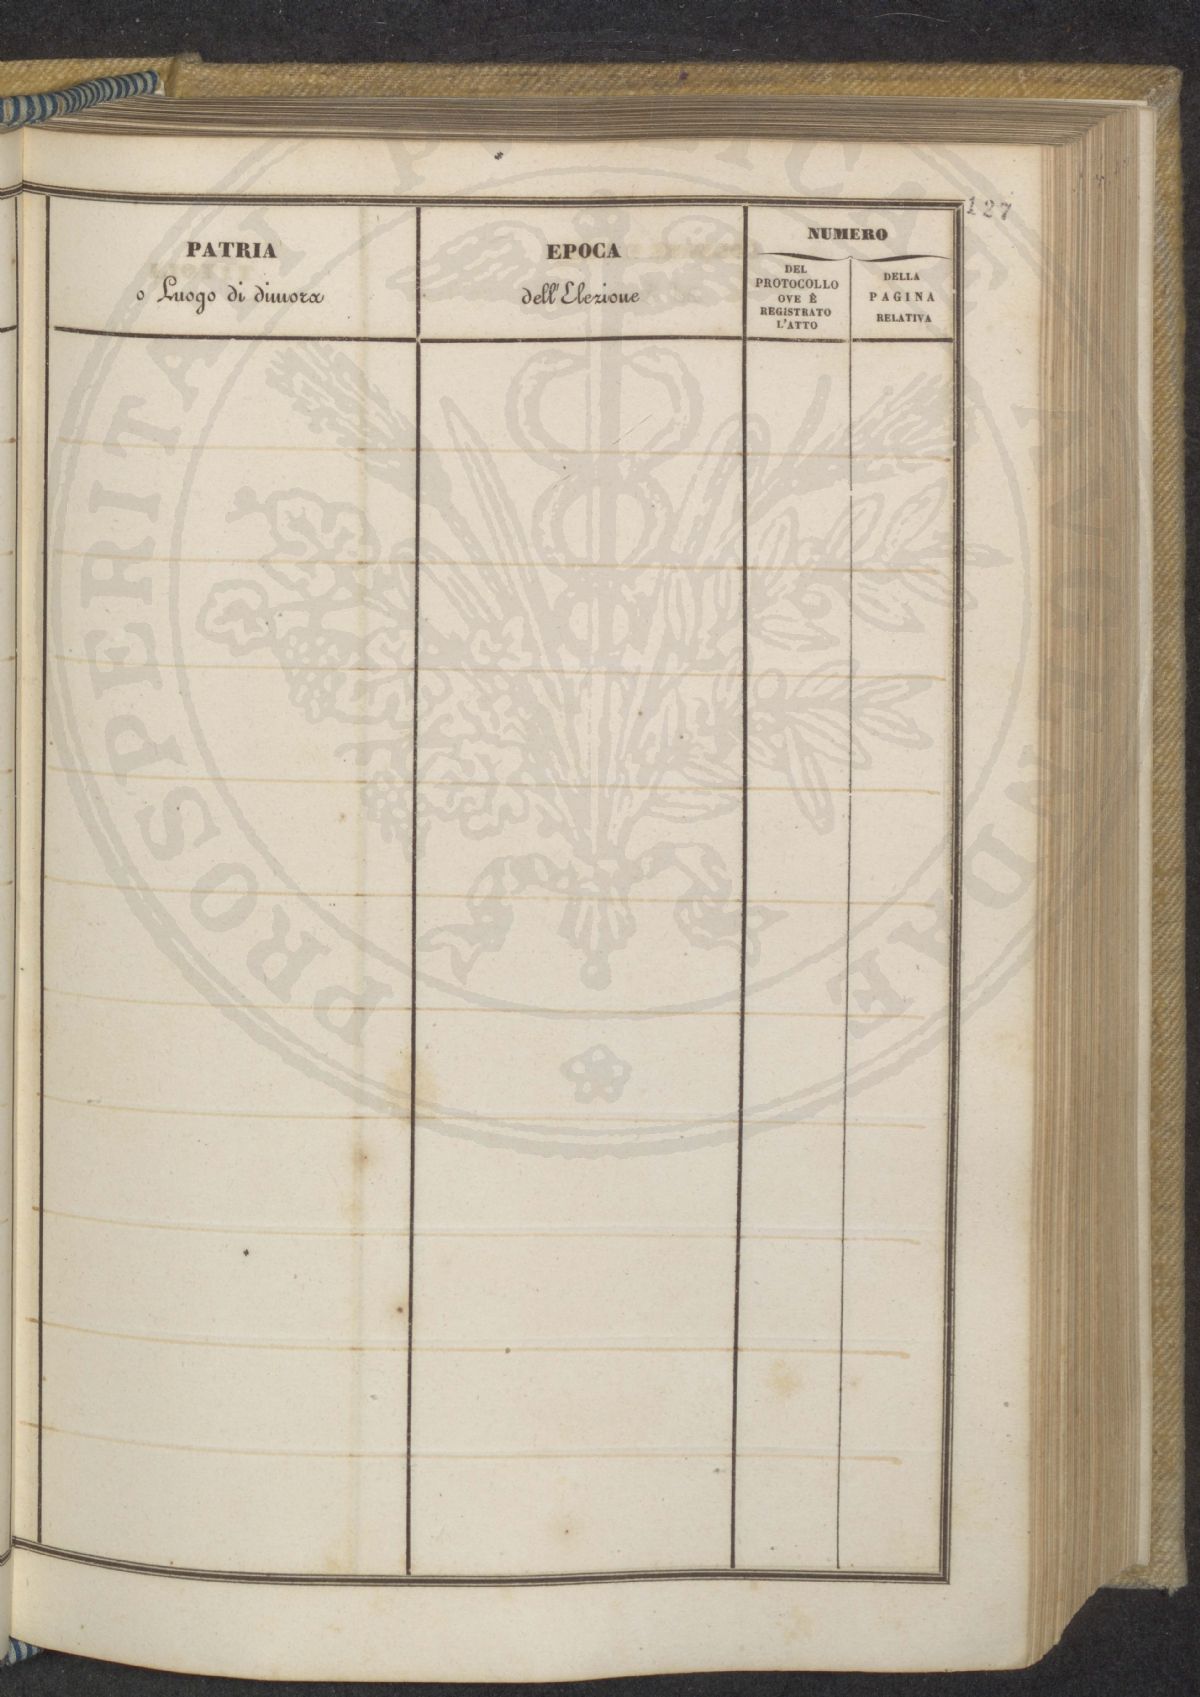 127
PATRIA
o Luogo di dimora
EPOCA
dell'Elezione
NUMERO
DEL
PROTOCOLLO
OVE È
REGISTRATO
L'ATTO
DELLA
PAGINA
RELATIVA
PROSPERITATI PUBLICAE AUGENDAE